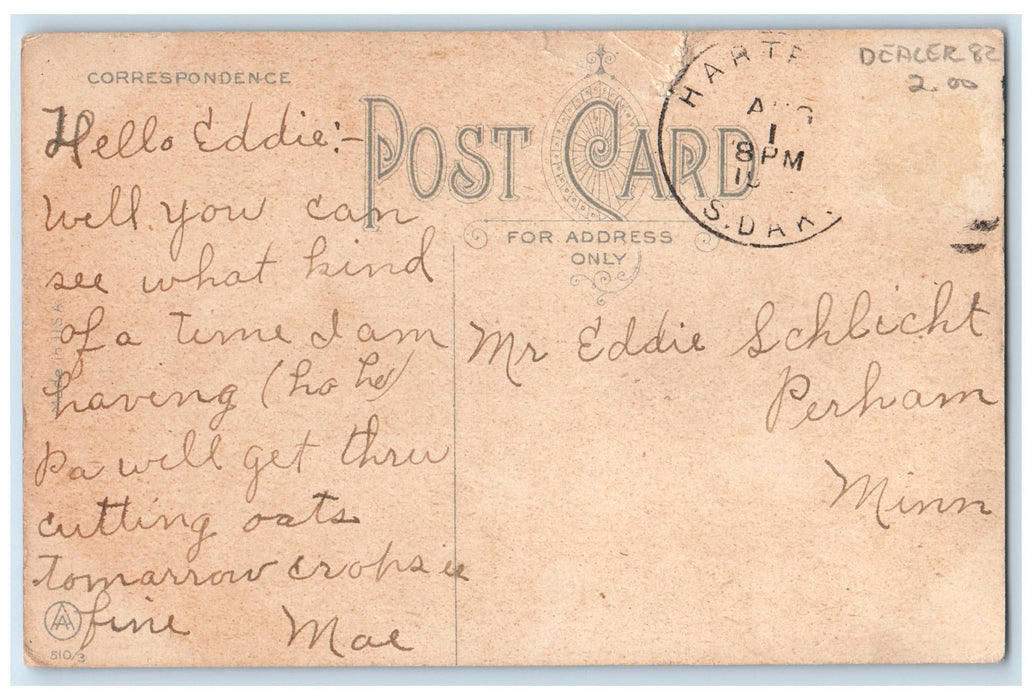 CORRESPONDENCE
POST CARD
FOR ADDRESS
ONLY
HARTF
AUG
1
8 PM
S. DAK.
DEALER 82
2.00
Hello Eddie:-
Well you can
see what kind
of a time I am
having (ho he)
Pa will get thru
cutting oats
tomarrow crops is
fine Mae
Mr Eddie Schlicht
Perham
Minn
Made in USA
AA
510/3